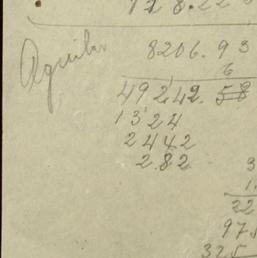 Aguilar 8206.93
6
49242.58
1324
2442
2.82
3
1.
22
97.
325